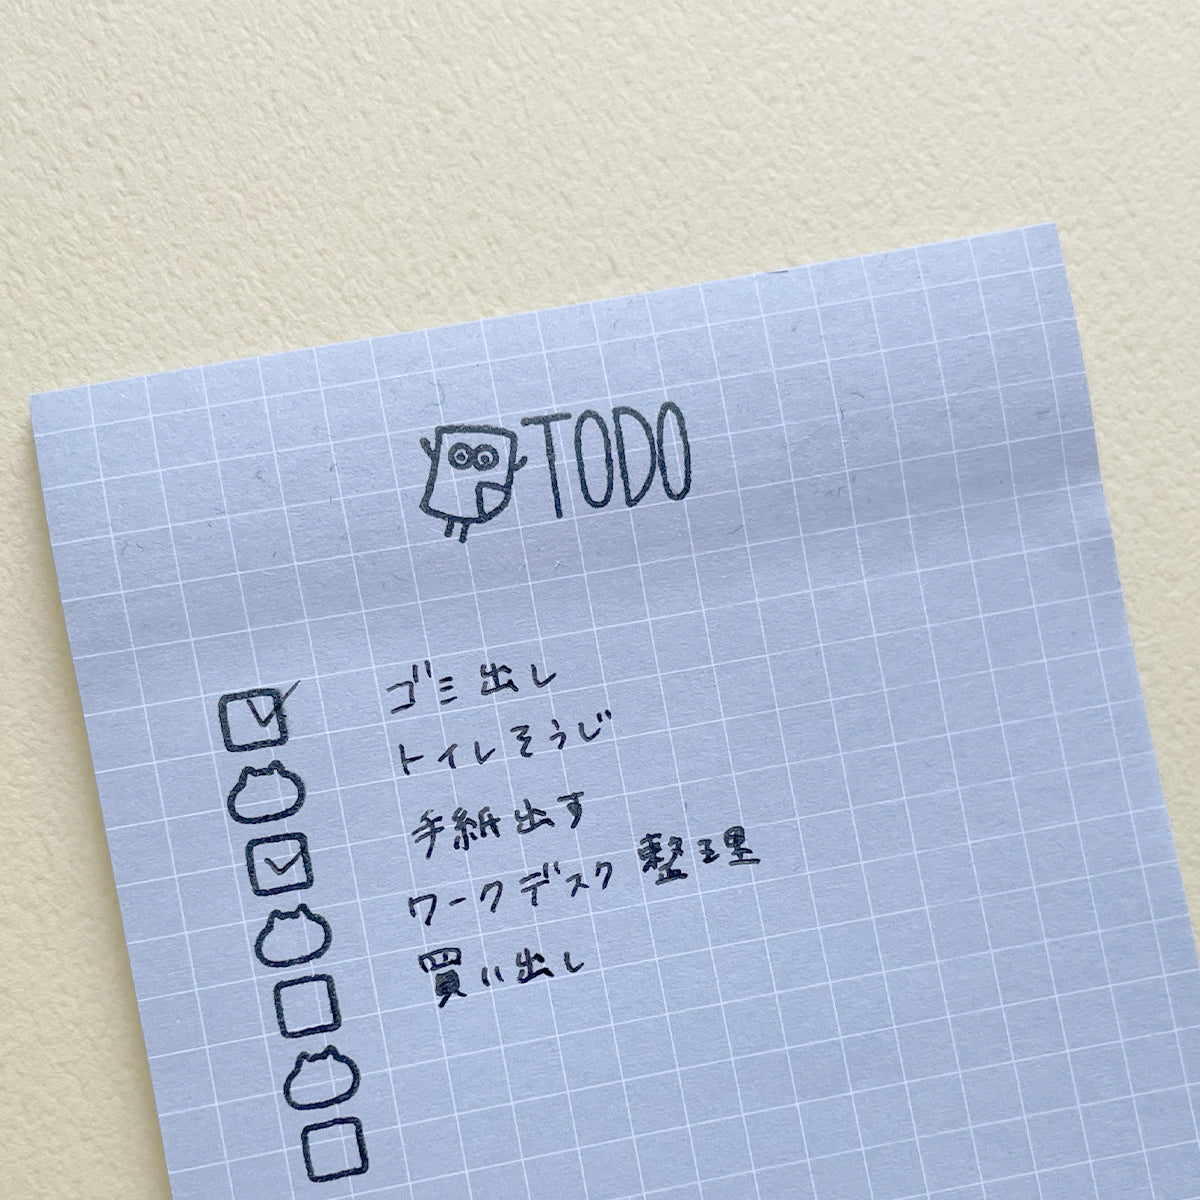 TODO
ゴミ出し
トイレそうじ
手紙出す
ワークデスク整理
買い出し